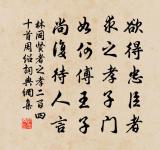 欲得忠臣者
求之孝子門
如何傅王子
尚復待人言
林同賢者之孝二百四
十首周紹詞典網集